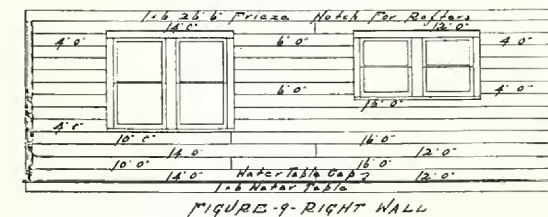 1x6 26' 6" Frieze Notch For Rafters
14' 0" 12' 0"
4' 0" 6' 0" 4' 0"
6' 0" 4' 0"
16' 0"
4' 0"
10' 0" 16' 0"
14' 0" 12' 0"
10' 0" 16' 0"
14' 0" Water Table Cap 12' 0"
1x6 Water Table
FIGURE-9-RIGHT WALL